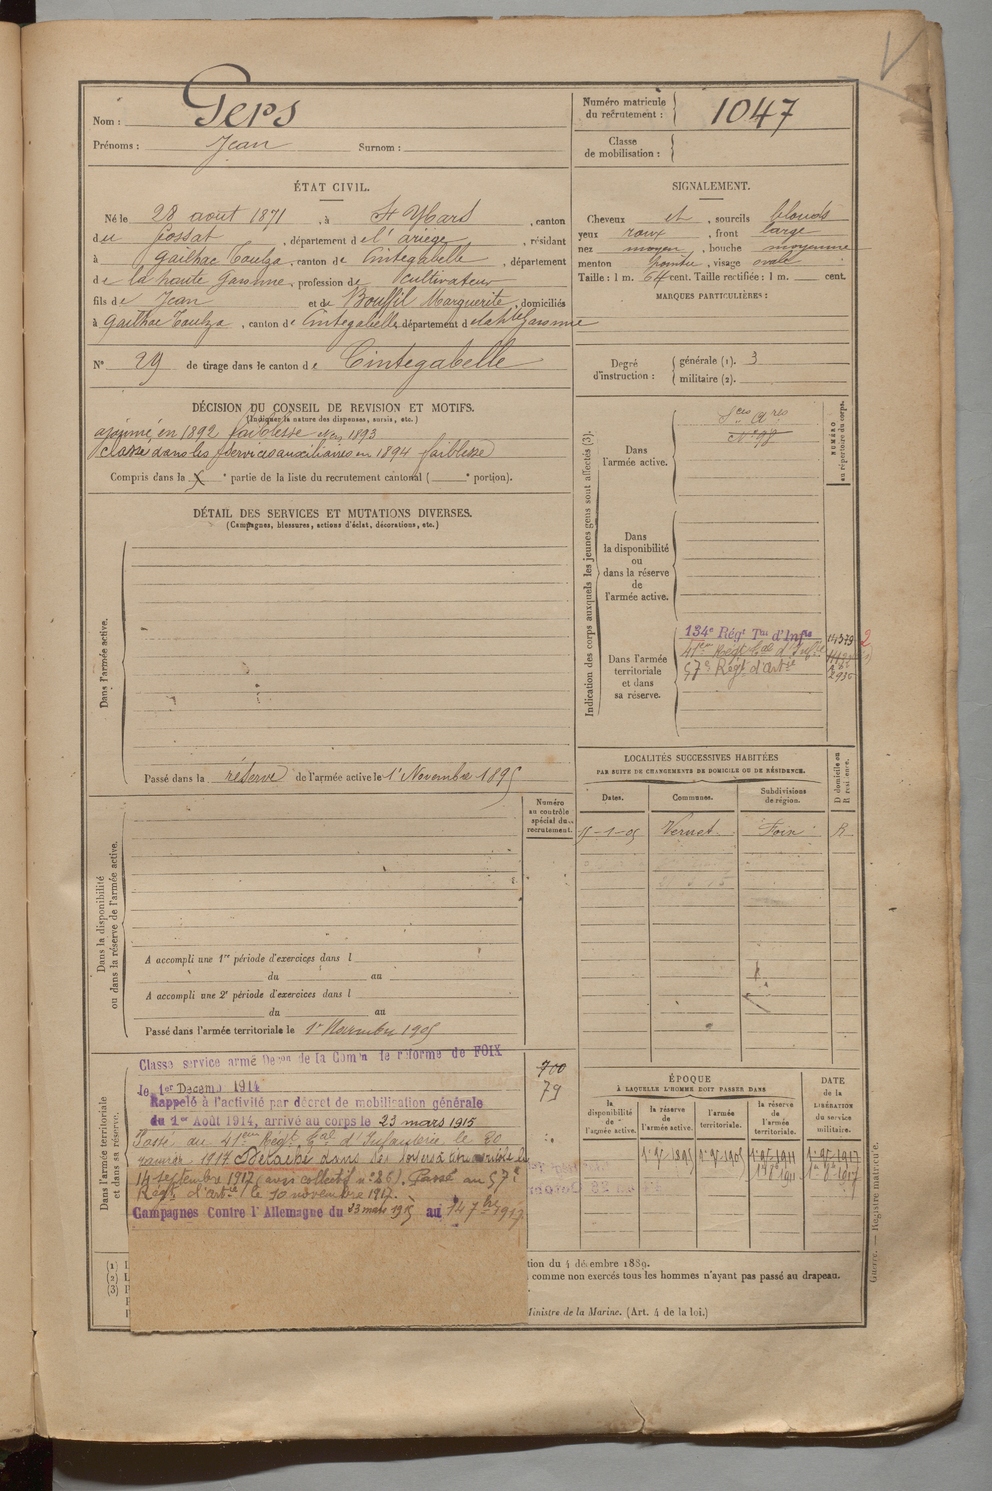 Nom : Gers
Prénoms : Jean Surnom :
Numéro matricule du recrutement : 1047
Classe de mobilisation :
ÉTAT CIVIL.
Né le 28 aout 1871, à St Ybars, canton
du Fossat, département de l'ariège, résidant
à Gailhac Toulza, canton de Cintegabelle, département
de la haute Garonne, profession de cultivateur
fils de Jean et de Bouffil Marguerite, domiciliés
à Gailhac Toulza, canton de Cintegabelle, département de la hte Garonne
N° 29 de tirage dans le canton de Cintegabelle
SIGNALEMENT.
Cheveux et, sourcils blonds
yeux roux, front large
nez moyen, bouche moyenne
menton pointu, visage ovale
Taille : 1 m. 64 cent. Taille rectifiée : 1 m. cent.
MARQUES PARTICULIÈRES :
Degré d'instruction : générale (1). 3
militaire (2).
DÉCISION DU CONSEIL DE REVISION ET MOTIFS.
(Indiquer la nature des dispenses, sursis, etc.)
ajourné en 1892 faiblesse 1893
classé dans les services auxiliaires en 1894 faiblesse
Compris dans la e partie de la liste du recrutement cantonal ( e portion).
DÉTAIL DES SERVICES ET MUTATIONS DIVERSES.
(Campagnes, blessures, actions d'éclat, décorations, etc.)
Dans l'armée active.
Passé dans la réserve de l'armée active le 1er Novembre 1895
Indication des corps auxquels les jeunes gens sont affectés (3).
NUMÉRO au répertoire du corps.
Dans l'armée active.
Sces Ares
Dans la disponibilité ou dans la réserve de l'armée active.
Dans l'armée territoriale et dans sa réserve.
134e Régt Tal d'Infie 14379
41em Régt Cal d'Infie
57e Régt d'Artie
LOCALITÉS SUCCESSIVES HABITÉES
PAR SUITE DE CHANGEMENTS DE DOMICILE OU DE RÉSIDENCE.
Dates. Communes. Subdivisions de région. D domicile ou R résidence.
15-1-05 Vernet Foix R
Numéro au contrôle spécial du recrutement.
Dans la disponibilité ou dans la réserve de l'armée active.
A accompli une 1re période d'exercices dans l
du au
A accompli une 2e période d'exercices dans l
du au
Passé dans l'armée territoriale le 1er Novembre 1905
Dans l'armée territoriale et dans sa réserve.
700
79
Classe service armé de la Comm de réforme de FOIX
le 1er Decemb 1914
Rappelé à l'activité par décret de mobilisation générale
du 1er Août 1914, arrivé au corps le 23 mars 1915
Passé au 41em Régt Cal d'Infanterie le 20
janvier 1917 Détaché dans ses foyers agricole le
14 septembre 1917 (avis collectif n° 26). Passé au 57e
Régt d'Artie le 10 novembre 1917.
Campagnes Contre l'Allemagne du 23 mars 1915 au 14 7bre 1917
ÉPOQUE
À LAQUELLE L'HOMME DOIT PASSER DANS
la disponibilité de l'armée active. la réserve de l'armée active. l'armée territoriale. la réserve de l'armée territoriale.
DATE de la LIBÉRATION du service militaire.
1er 9e 1895 1er 9e 1905 1er 9e 1911 1er 9e 1917
1er 8e 1911 1er 8e 1917
(1)
(2)
(3)
tion du 4 décembre 1889.
comme non exercés tous les hommes n'ayant pas passé au drapeau.
Ministre de la Marine. (Art. 4 de la loi.)
Guerre. — Registre matricule.